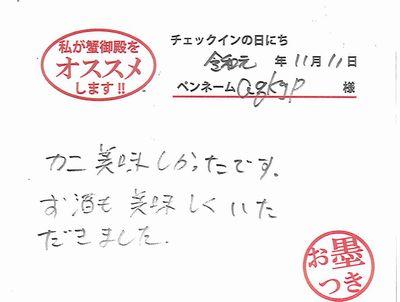 私が蟹御殿を
オススメ
します!!
チェックインの日にち
令和元 年 11月 11日
ペンネーム agkgp 様
カニ美味しかったです。
お酒も美味しくいた
だきました。
お墨
つき